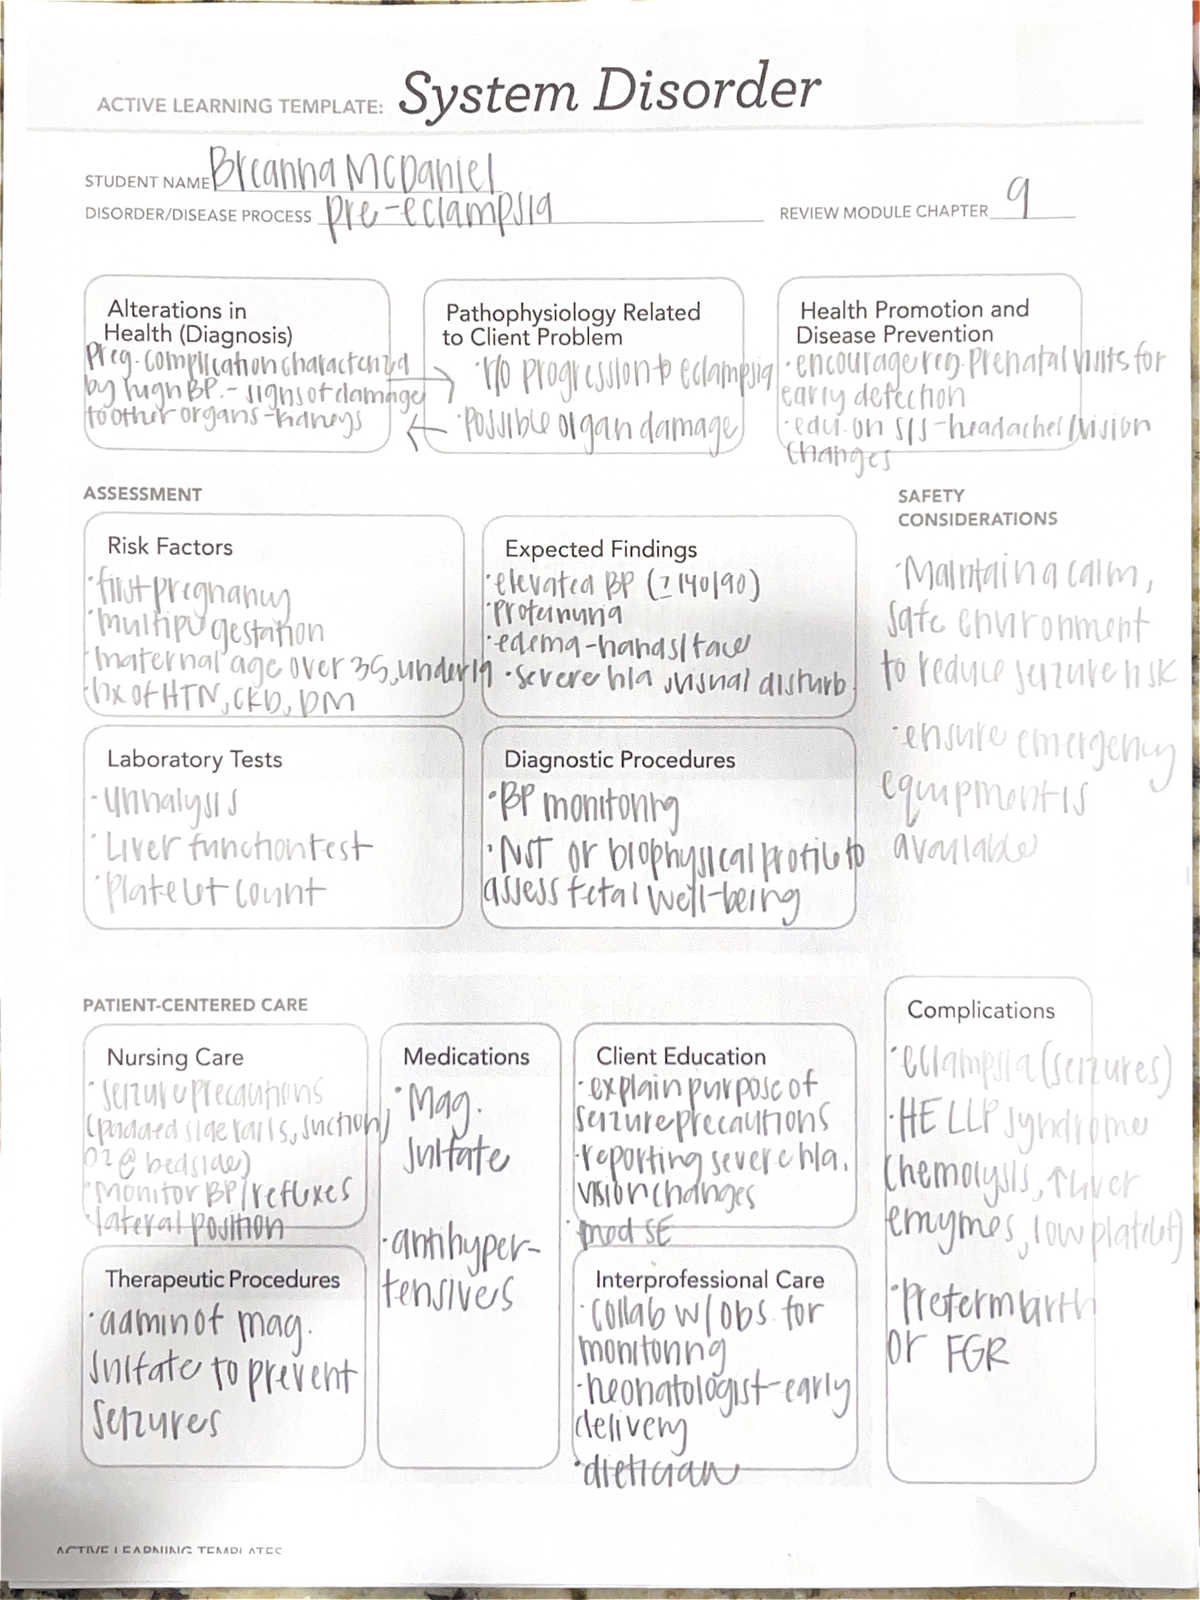 ACTIVE LEARNING TEMPLATE: System Disorder
STUDENT NAME Breanna McDaniel
DISORDER/DISEASE PROCESS pre-eclampsia
REVIEW MODULE CHAPTER 9
Alterations in
Health (Diagnosis)
Preg. complication characterized
by high BP. - signs of damage
to other organs - kidneys
Pathophysiology Related
to Client Problem
· r/o progression to eclampsia
· possible organ damage
Health Promotion and
Disease Prevention
· encourage reg. prenatal visits for
early detection
· edu. on S/S - headaches/vision
changes
ASSESSMENT
Risk Factors
· first pregnancy
· multiple gestation
· maternal age over 35, under 19
· hx of HTN, CKD, DM
Expected Findings
· elevated BP (≥140/90)
· proteinuria
· edema - hands/face
· severe h/a, visual disturb.
SAFETY
CONSIDERATIONS
· Maintain a calm,
safe environment
to reduce seizure risk
· ensure emergency
equipment is
available
Laboratory Tests
· Urinalysis
· Liver function test
· Platelet count
Diagnostic Procedures
· BP monitoring
· NST or biophysical profile to
assess fetal well-being
PATIENT-CENTERED CARE
Nursing Care
· seizure precautions
(padded side rails, suction,
O2 @ bedside)
· Monitor BP/reflexes
· lateral position
Medications
· Mag.
sulfate
· antihyper-
tensives
Client Education
· explain purpose of
seizure precautions
· reporting severe h/a,
vision changes
· med SE
Complications
· eclampsia (seizures)
· HELLP syndrome
(hemolysis, ↑ liver
enzymes, low platelet)
· Preterm birth
or FGR
Therapeutic Procedures
· admin of mag.
sulfate to prevent
seizures
Interprofessional Care
· collab w/ obs. for
monitoring
· neonatologist - early
delivery
· dietician
ACTIVE LEARNING TEMPLATES